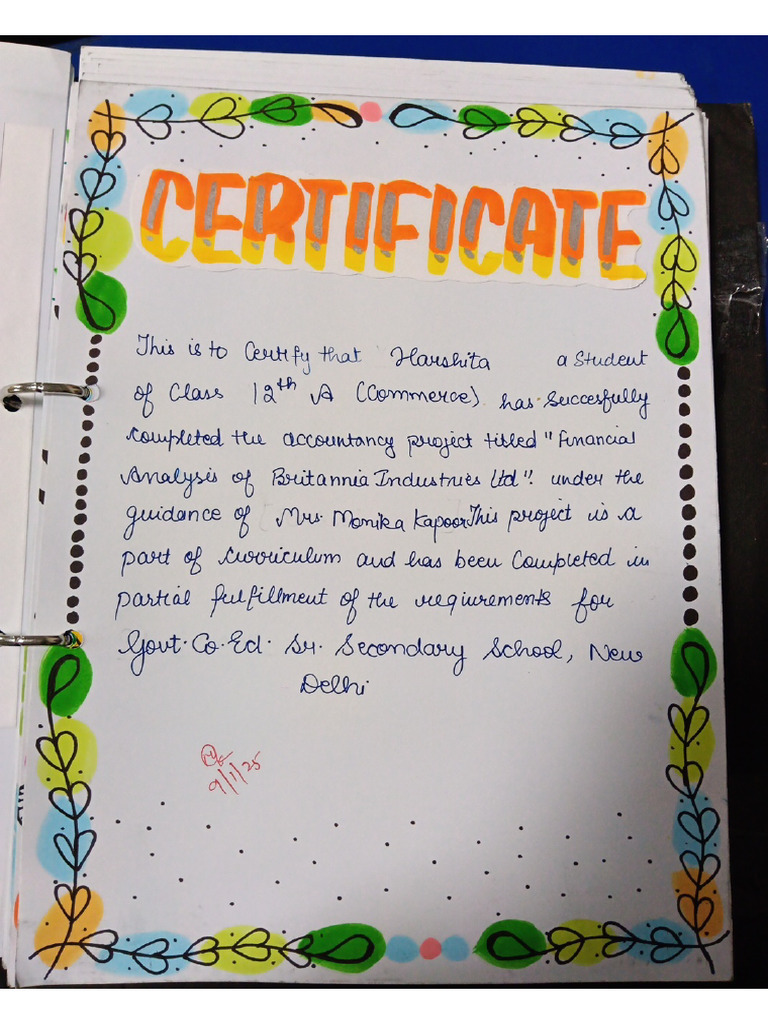 CERTIFICATE
This is to Certify that Harshita a Student
of Class 12th A (Commerce) has Succesfully
Completed the accountancy project titled "Financial
Analysis of Britannia Industries Ltd". under the
guidance of Mrs. Monika Kapoor This project is a
part of Curriculum and has been Completed in
partial fulfillment of the requirements for
Govt. Co. Ed. Sr. Secondary School, New
Delhi
9/1/25